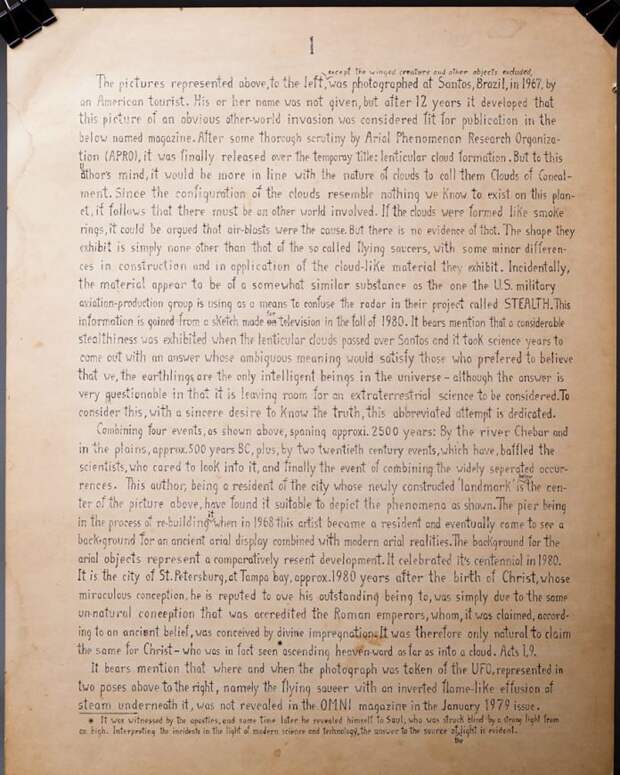 1
except the winged creature and other objects excluded,
The pictures represented above, to the left, was photographed at Santos, Brazil, in 1967, by
an American tourist. His or her name was not given, but after 12 years it developed that
this picture of an obvious other-world invasion was considered fit for publication in the
below named magazine. After some thorough scrutiny by Arial Phenomenon Research Organiza-
tion (APRO), it was finally released over the temporay title: lenticular cloud formation. But to this
author's mind, it would be more in line with the nature of clouds to call them Clouds of Conceal-
ment. Since the configuration of the clouds resemble nothing we know to exist on this plan-
et, it follows that there must be an other world involved. If the clouds were formed like smoke
rings, it could be argued that air-blasts were the cause. But there is no evidence of that. The shape they
exhibit is simply none other than that of the so called flying saucers, with some minor differen-
ces in construction and in application of the cloud-like material they exhibit. Incidentally,
the material appear to be of a somewhat similar substance as the one the U.S. military
aviation-production group is using as a means to confuse the radar in their project called STEALTH. This
information is gained from a sketch made for television in the fall of 1980. It bears mention that a considerable
stealthiness was exhibited when the lenticular clouds passed over Santos and it took science years to
come out with an answer whose ambiguous meaning would satisfy those who prefered to believe
that we, the earthlings, are the only intelligent beings in the universe - although the answer is
very questionable in that it is leaving room for an extraterrestrial science to be considered. To
consider this, with a sincere desire to know the truth, this abbreviated attempt is dedicated.
Combining four events, as shown above, spaning approxi. 2500 years: By the river Chebar and
in the plains, approx. 500 years BC, plus, by two twentieth century events, which have, baffled the
scientists, who cared to look into it, and finally the event of combining the widely seperated occur-
rences. This author, being a resident of the city whose newly constructed 'landmark' is below the cen-
ter of the picture above, have found it suitable to depict the phenomena as shown. The pier being
in the process of re-building it when in 1968 this artist became a resident and eventually came to see a
background for an ancient arial display combined with modern arial realities. The background for the
arial objects represent a comparatively resent development. It celebrated it's centennial in 1980.
It is the city of St. Petersburg, at Tampa bay, approx. 1980 years after the birth of Christ, whose
miraculous conception, he is reputed to owe his outstanding being to, was simply due to the same
un-natural conception that was accredited the Roman emperors, whom, it was claimed, accord-
ing to an ancient belief, was conceived by divine impregnation. It was therefore only natural to claim
the same for Christ - who was in fact seen * ascending heaven-word as far as into a cloud. Acts 1,9.
It bears mention that where and when the photograph was taken of the UFO, represented in
two poses above to the right, namely the flying saucer with an inverted flame-like effusion of
steam underneath it, was not revealed in the OMNI magazine in the January 1979 issue.
* It was witnessed by the apostles, and some time later he revealed himself to Saul, who was struck blind by a strong light from
on high. Interpreting the incidents in the light of modern science and technology, the answer to the source of the light is evident.